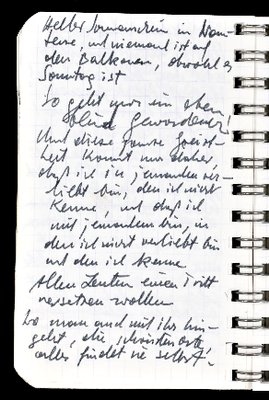 Heller Sonnenschein in
und niemand ist auf
den Balkonen, obwohl es
Sonntag ist
So geht nur ein eben
blind Gewordener!
Und diese ganze
kommt nur daher,
daß ich in jemanden ver-
liebt bin, den ich nicht
kenne, und daß ich
mit jemandem bin, in
den ich nicht verliebt bin
und den ich kenne
Allen Leuten einen Tritt
versetzen wollen
Wo man auch mit ihr hin-
geht, die schönsten Orte
alles findet sie selbst